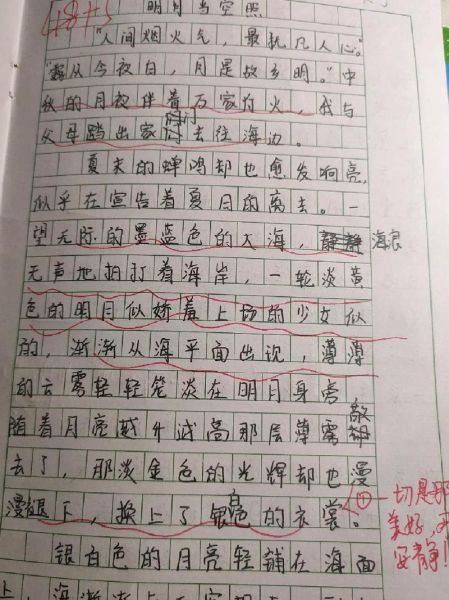 48+5
明月当空照
“人间烟火气，最抚凡人心。”
“露从今夜白，月是故乡明。”中
秋的月夜伴着万家灯火，我与
父母踏出家门去往海边。
夏末的蝉鸣却也愈发响亮，
似乎在宣告着夏月的离去。一
望无际的墨蓝色的大海，静静海浪
无声地拍打着海岸，一轮淡黄
色的明月似娇羞上场的少女似
的，渐渐从海平面出现，薄薄
的云雾轻轻笼淡在明月身旁
随着月亮越升越高那层薄雾散却
去了，那淡金色的光辉却也漫
漫退下，换上了银白色的衣裳。
①一切是那
美好，
安静！
银白色的月亮轻铺在海面
上，海浪